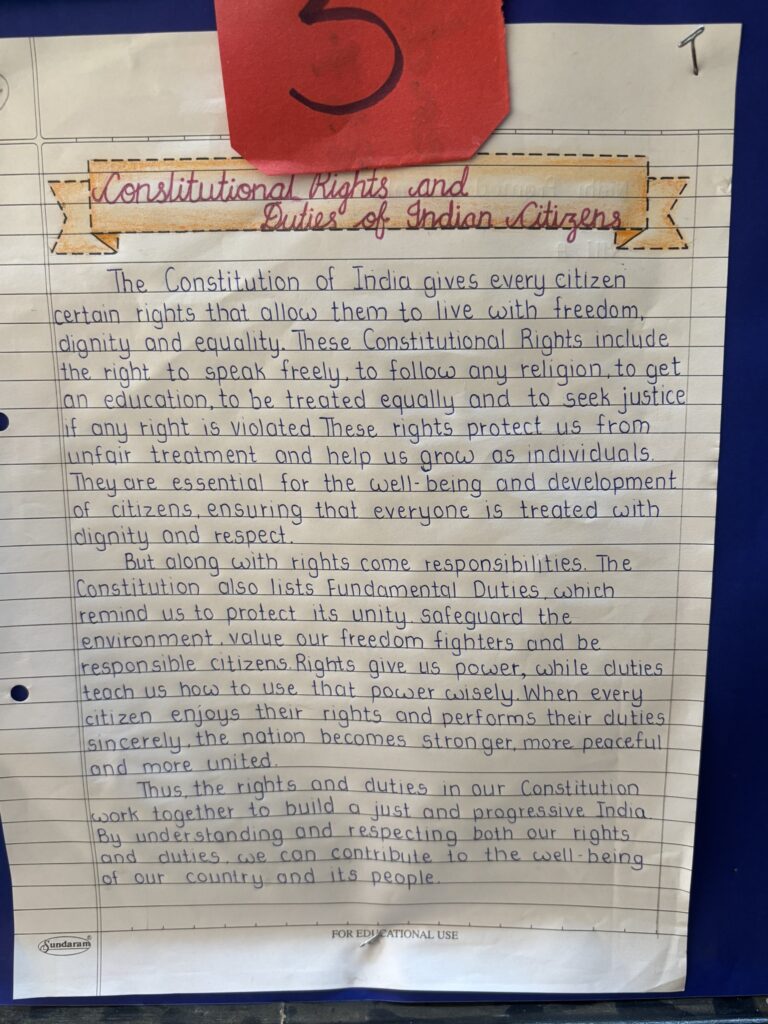 5
T
Constitutional Rights and
Duties of Indian Citizens
The Constitution of India gives every citizen
certain rights that allow them to live with freedom,
dignity and equality. These Constitutional Rights include
the right to speak freely, to follow any religion, to get
an education, to be treated equally and to seek justice
if any right is violated. These rights protect us from
unfair treatment and help us grow as individuals.
They are essential for the well-being and development
of citizens, ensuring that everyone is treated with
dignity and respect.
But along with rights come responsibilities. The
Constitution also lists Fundamental Duties, which
remind us to protect its unity, safeguard the
environment, value our freedom fighters and be
responsible citizens. Rights give us power, while duties
teach us how to use that power wisely. When every
citizen enjoys their rights and performs their duties
sincerely, the nation becomes stronger, more peaceful
and more united.
Thus, the rights and duties in our Constitution
work together to build a just and progressive India.
By understanding and respecting both our rights
and duties, we can contribute to the well-being
of our country and its people.
Sundaram®
FOR EDUCATIONAL USE